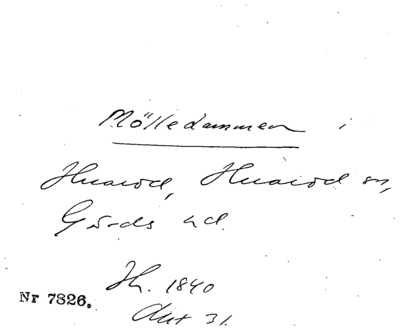 Mölledammen i
Huaröd, Huaröd sn,
Gärds hd.
Jh. 1840
Nr 7826.
Akt 31.